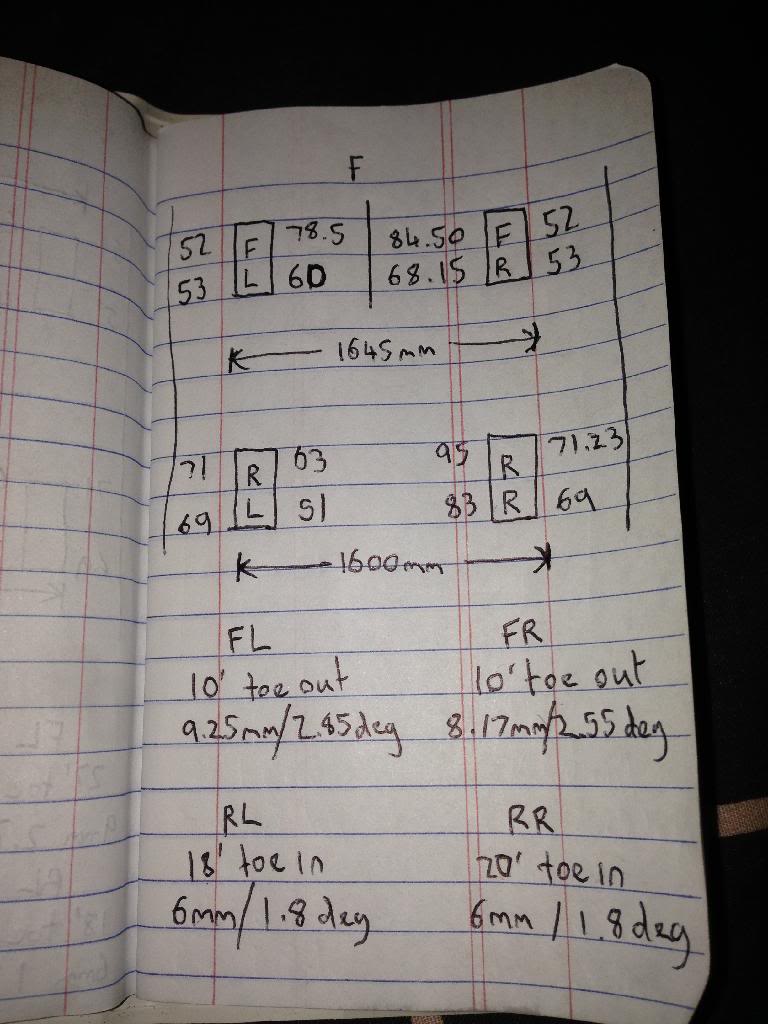 F
52 F 78.5 84.50 F 52
53 L 60 68.15 R 53
1645mm
71 R 63 95 R 71.23
69 L 51 83 R 69
1600mm
FL FR
10' toe out 10' toe out
9.25mm/2.85deg 8.17mm/2.55deg
RL RR
18' toe in 20' toe in
6mm/1.8deg 6mm/1.8deg